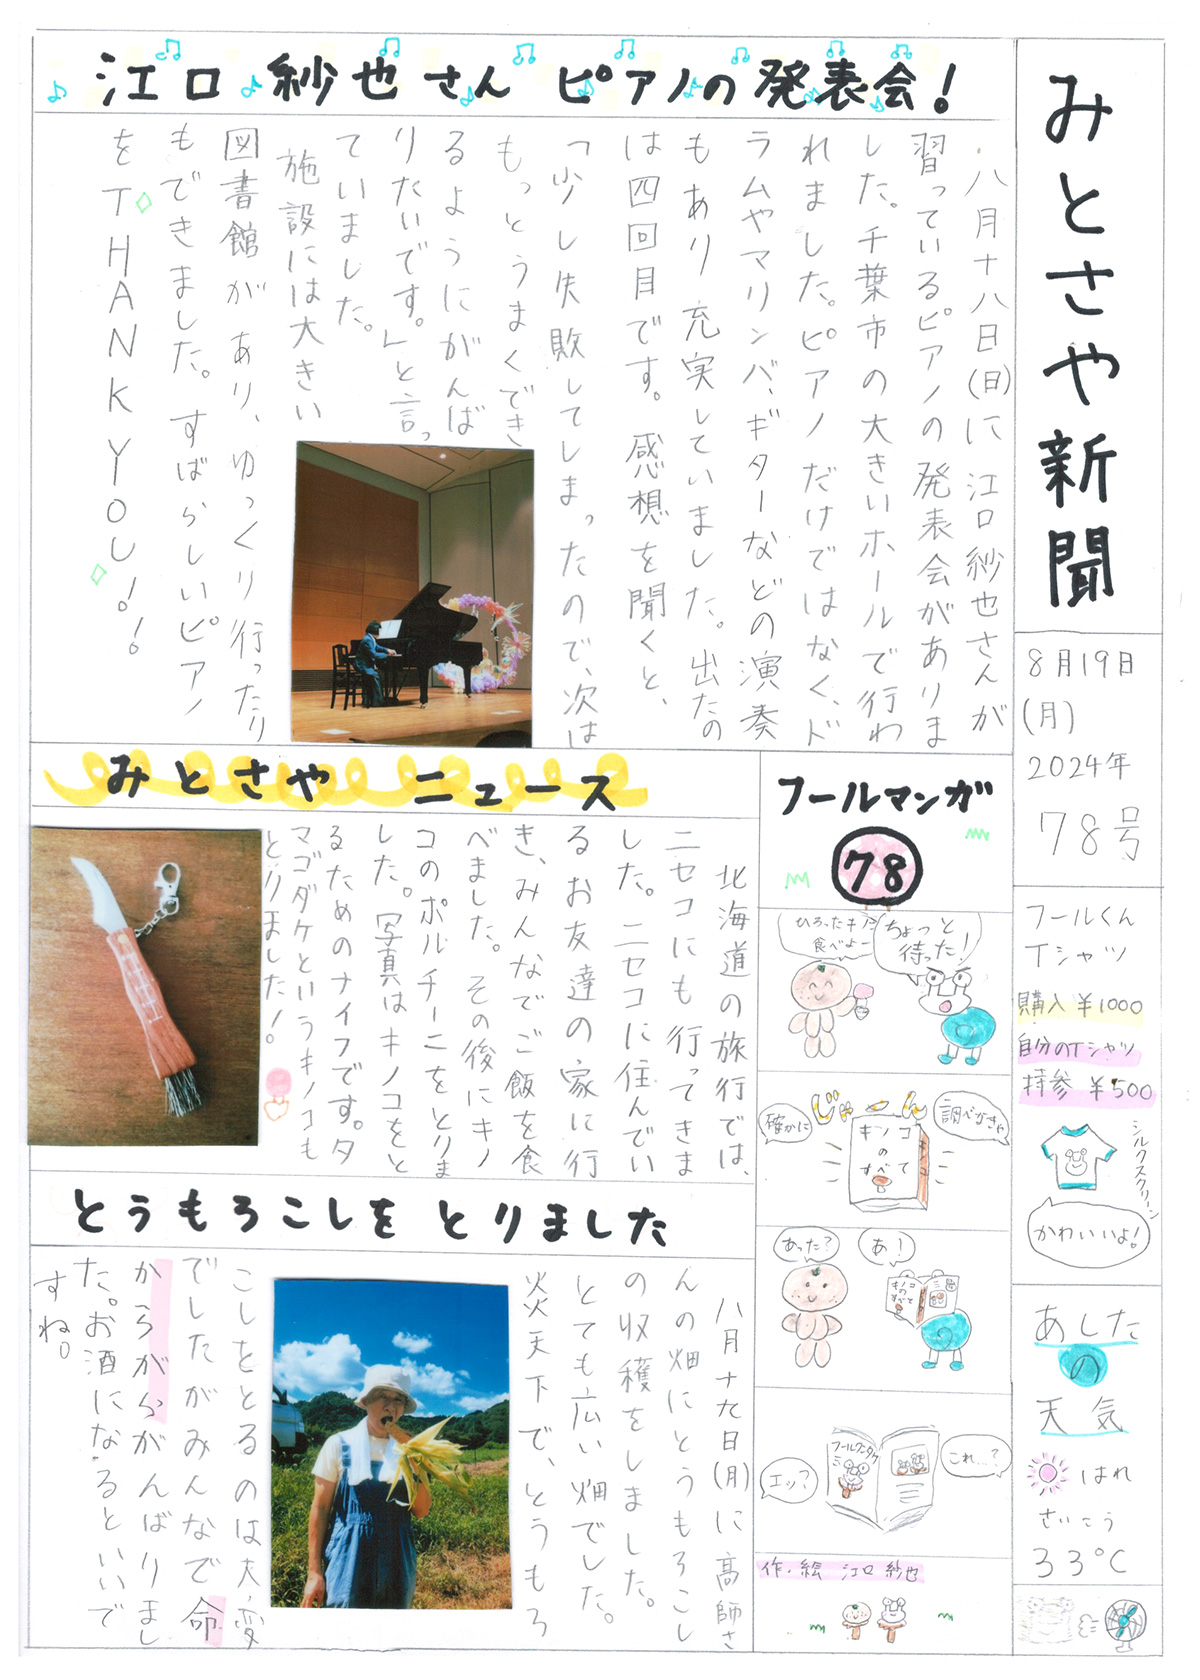 みとさや新聞
8月19日
(月)
2024年
78号
フールくん
Tシャツ
購入 ¥1000
自分のTシャツ
持参 ¥500
シルクスクリーン
かわいいよ!
あした
の
天気
はれ
さいこう
33℃
江口 紗也さん ピアノの発表会!
・八月十八日(日)に江口紗也さんが
習っているピアノの発表会がありま
した。千葉市の大きいホールで行わ
れました。ピアノだけではなく、ド
ラムやマリンバ、ギターなどの演奏
もあり充実していました。出たの
は四回目です。感想を聞くと、
「少し失敗してしまったので、次は
もっとうまくでき
るようにがんば
りたいです。」と言っ
ていました。
施設には大きい
図書館があり、ゆっくり行ったり
もできました。すばらしいピアノ
をTHANK YOU!!
みとさや ニュース
北海道の旅行では、
ニセコにも行ってきま
した。ニセコに住んでい
るお友達の家に行
き、みんなでご飯を食
べました。その後にキノ
コのポルチーニをとりま
した。写真はキノコをと
るためのナイフです。タ
マゴダケというキノコも
とりました!
フールマンガ
78
ひろったキノコ
食べよー
ちょっと
待った!
じゃーん
確かに
調べなきゃ
キノコ
の
すべて
あった?
あ!
キノコ
の
すべて
フールクンタケ
エッ?
これ…?
作・絵 江口 紗也
とうもろこしを とりました
八月十九日(月)に高師さ
んの畑にとうもろこし
の収穫をしました。
とても広い畑でした。
炎天下で、とうもろ
こしをとるのは大変
でしたがみんなで命
からがらがんばりまし
た。お酒になるといいで
すね。